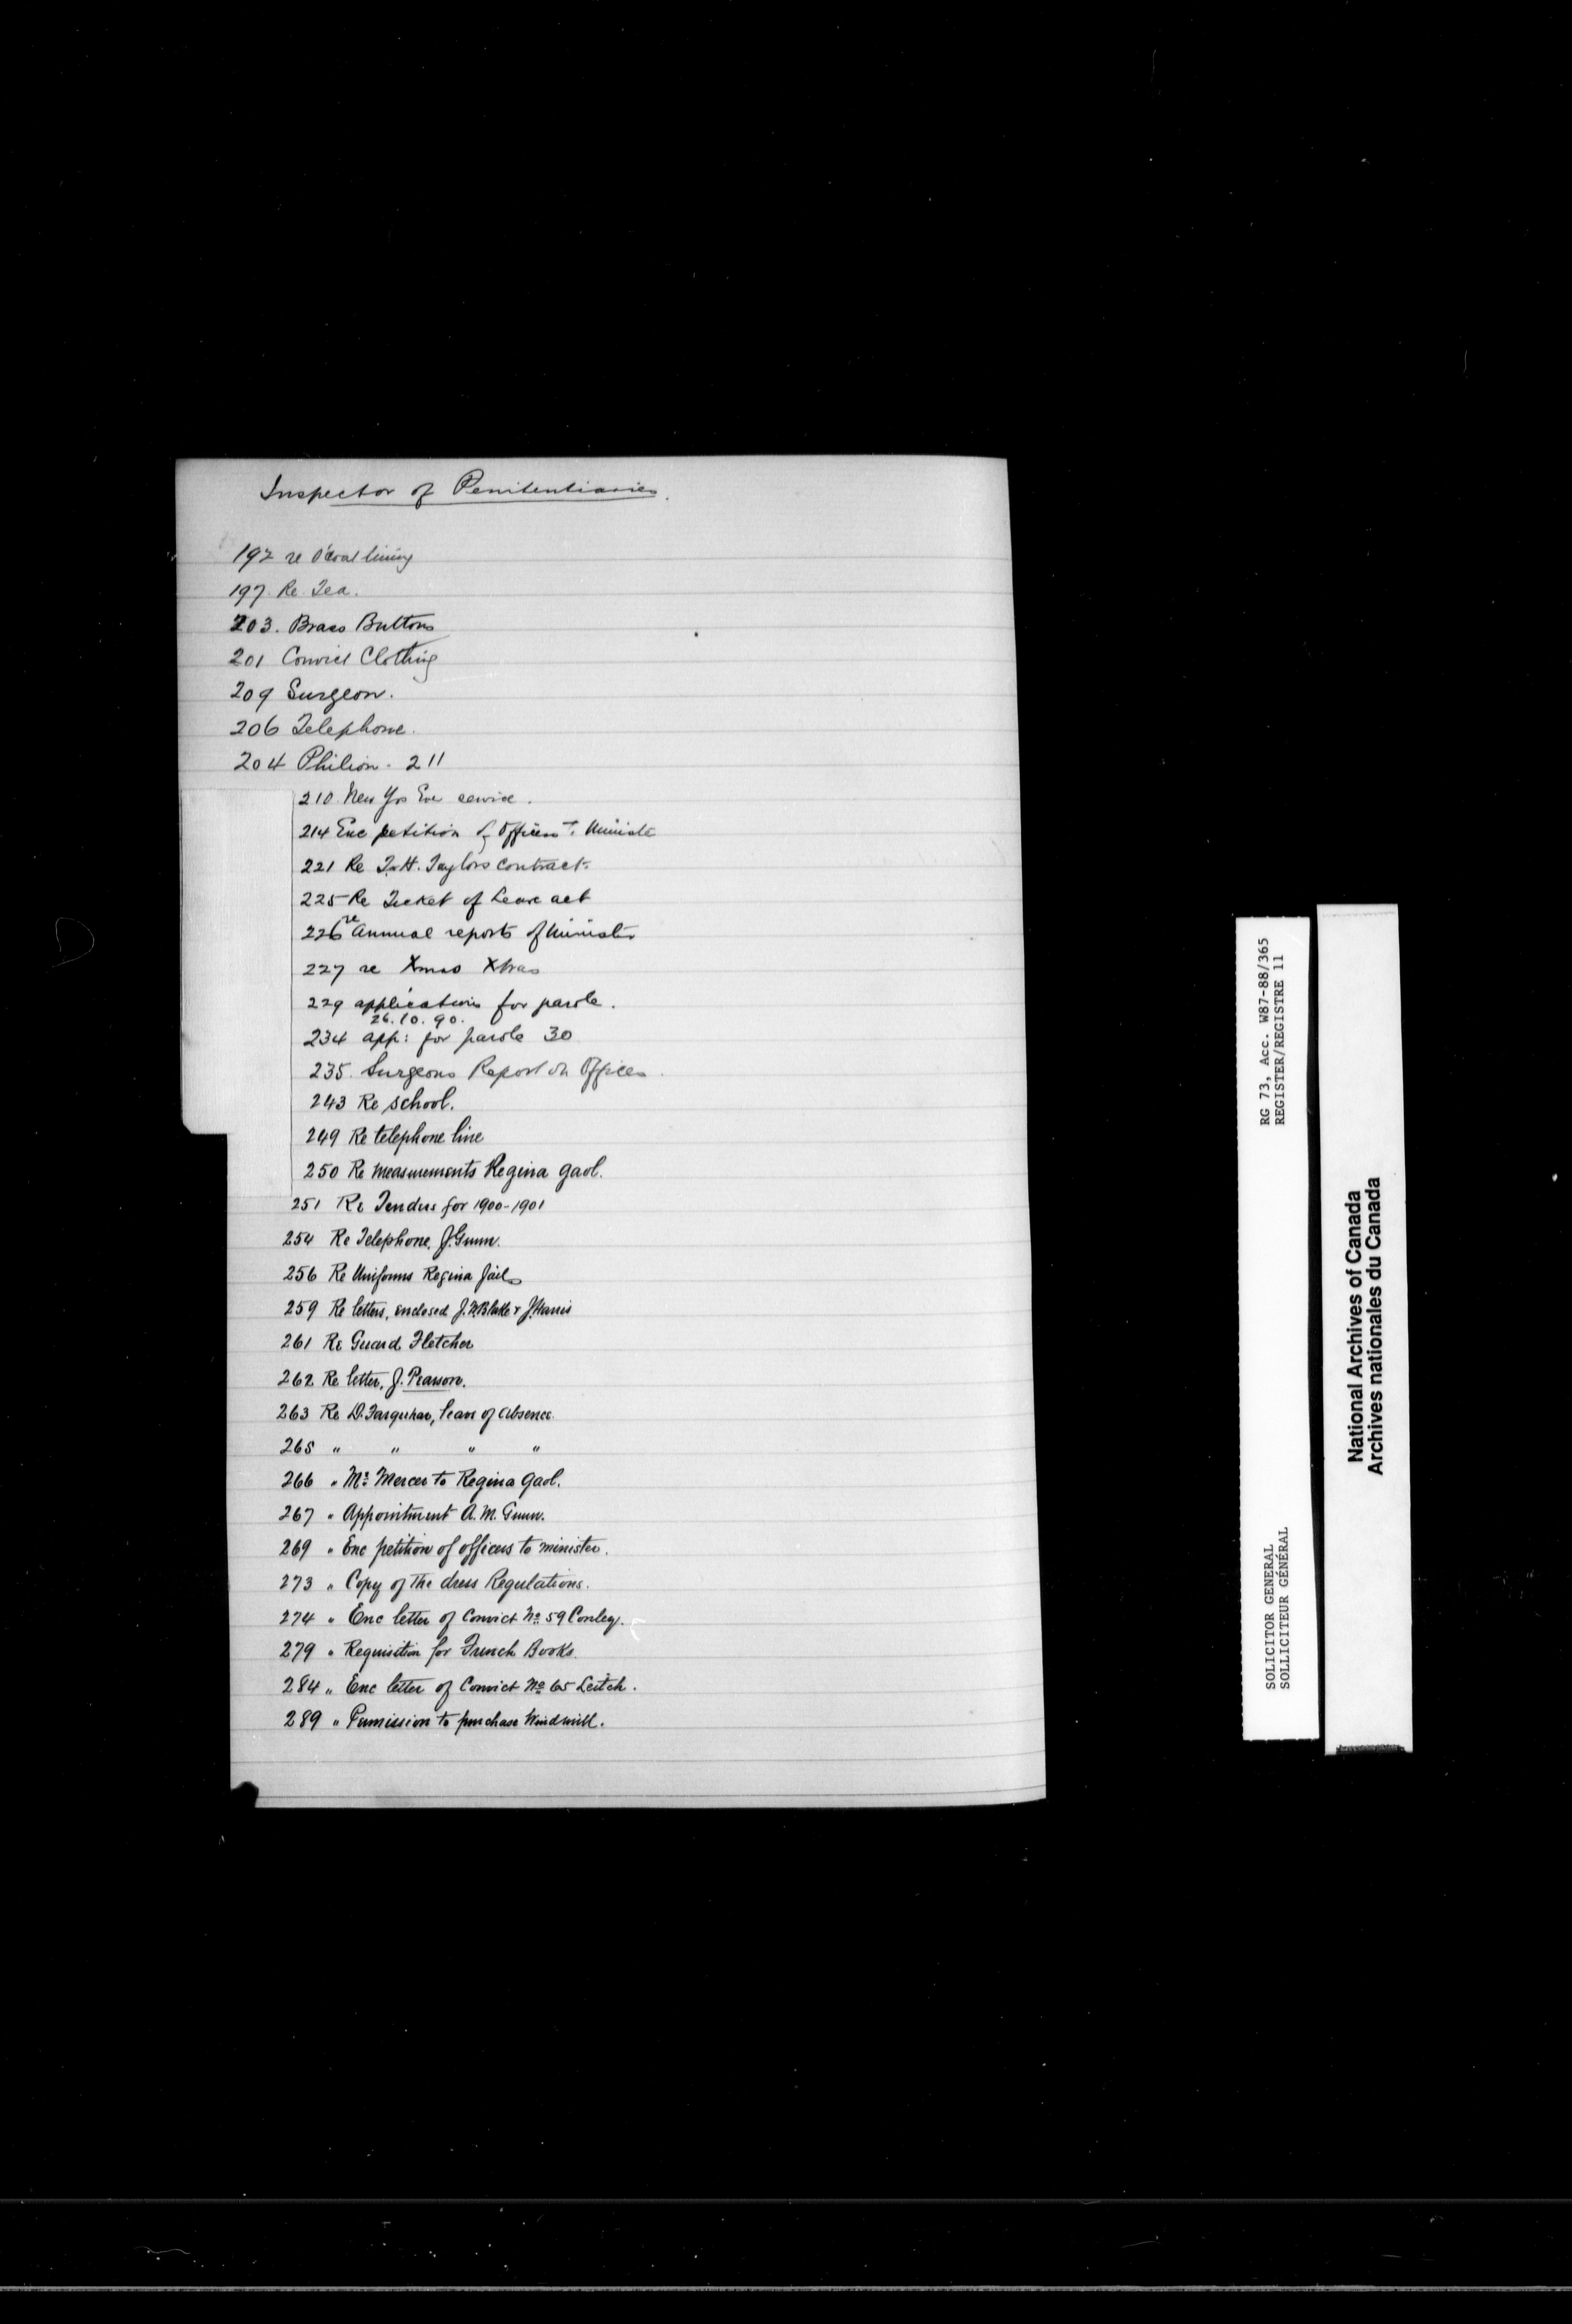 Inspector of Penitentiaries.
192 re O'coat lining
197. Re Tea.
203. Brass Buttons
201 Convict Clothing
209 Surgeon.
206 Telephone.
204 Philion. 211
210. New Yrs Eve service.
214 Enc petition of Officers to Minister
221 Re T.H. Taylors contract.
225 Re Ticket of Leave act
226 re annual reports of Minister
227 re Xmas Xtras
229 applications for parole.
26.10.90.
234 app: for parole 30
235. Surgeons Report on Officers.
243 Re school.
249 Re telephone line
250 Re measurements Regina gaol.
251 Re Tenders for 1900-1901
254 Re Telephone, J. Gunn.
256 Re Uniforms Regina Jails
259 Re letters, enclosed J. W. Blake & J. Harris
261 Re Guard Fletcher
262 Re letter, J. Pearson.
263 Re D. Farquhar, leave of absence.
265 " " " "
266 " Mr. Mercer to Regina Gaol.
267 " Appointment A. M. Gunn.
269 " Enc petition of officers to minister.
273 " Copy of the dress Regulations.
274 " Enc letter of Convict No 59 Conley.
279 " Requisition for French Books.
284 " Enc letter of Convict No 65 Leitch.
289 " Permission to purchase Windmill.
RG 73, Acc. W87-88/365
REGISTER/REGISTRE 11
SOLICITOR GENERAL
SOLLICITEUR GÉNÉRAL
National Archives of Canada
Archives nationales du Canada